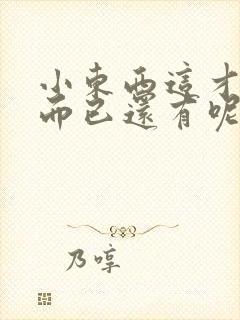 小東西這才
而已還有呢
乃哼